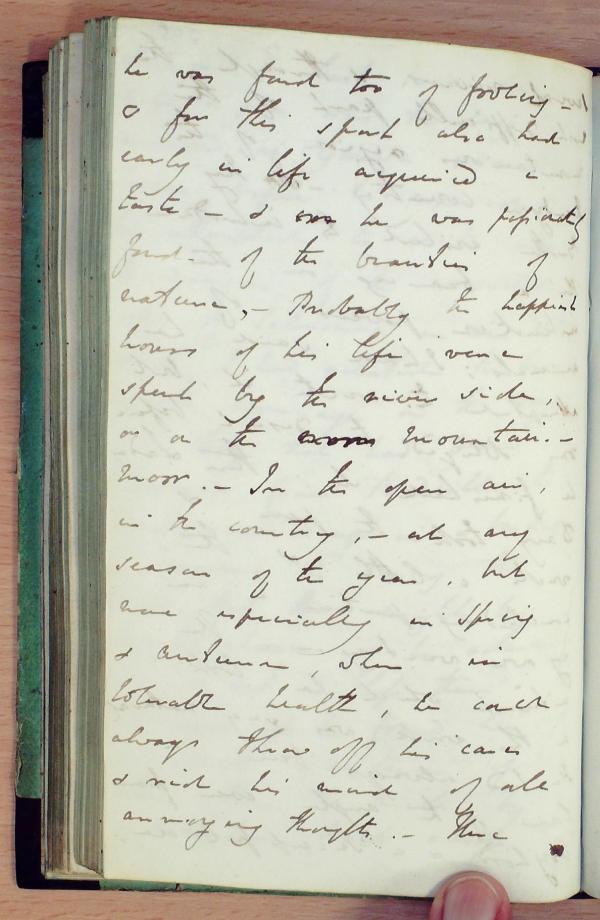 he was fond too of fooling -
& for this sport also had
early in life acquired a
taste - & he was passionately
fond - of the beauties of
nature, - Probably the happiest
hours of his life were
spent by the river side,
or on the mountain -
moor. - In the open air,
in the country, - at any
season of the year, but
more especially in Spring
& autumn, when in
tolerable health, he could
always throw off his cares
& rid his mind of all
annoying thoughts. - These